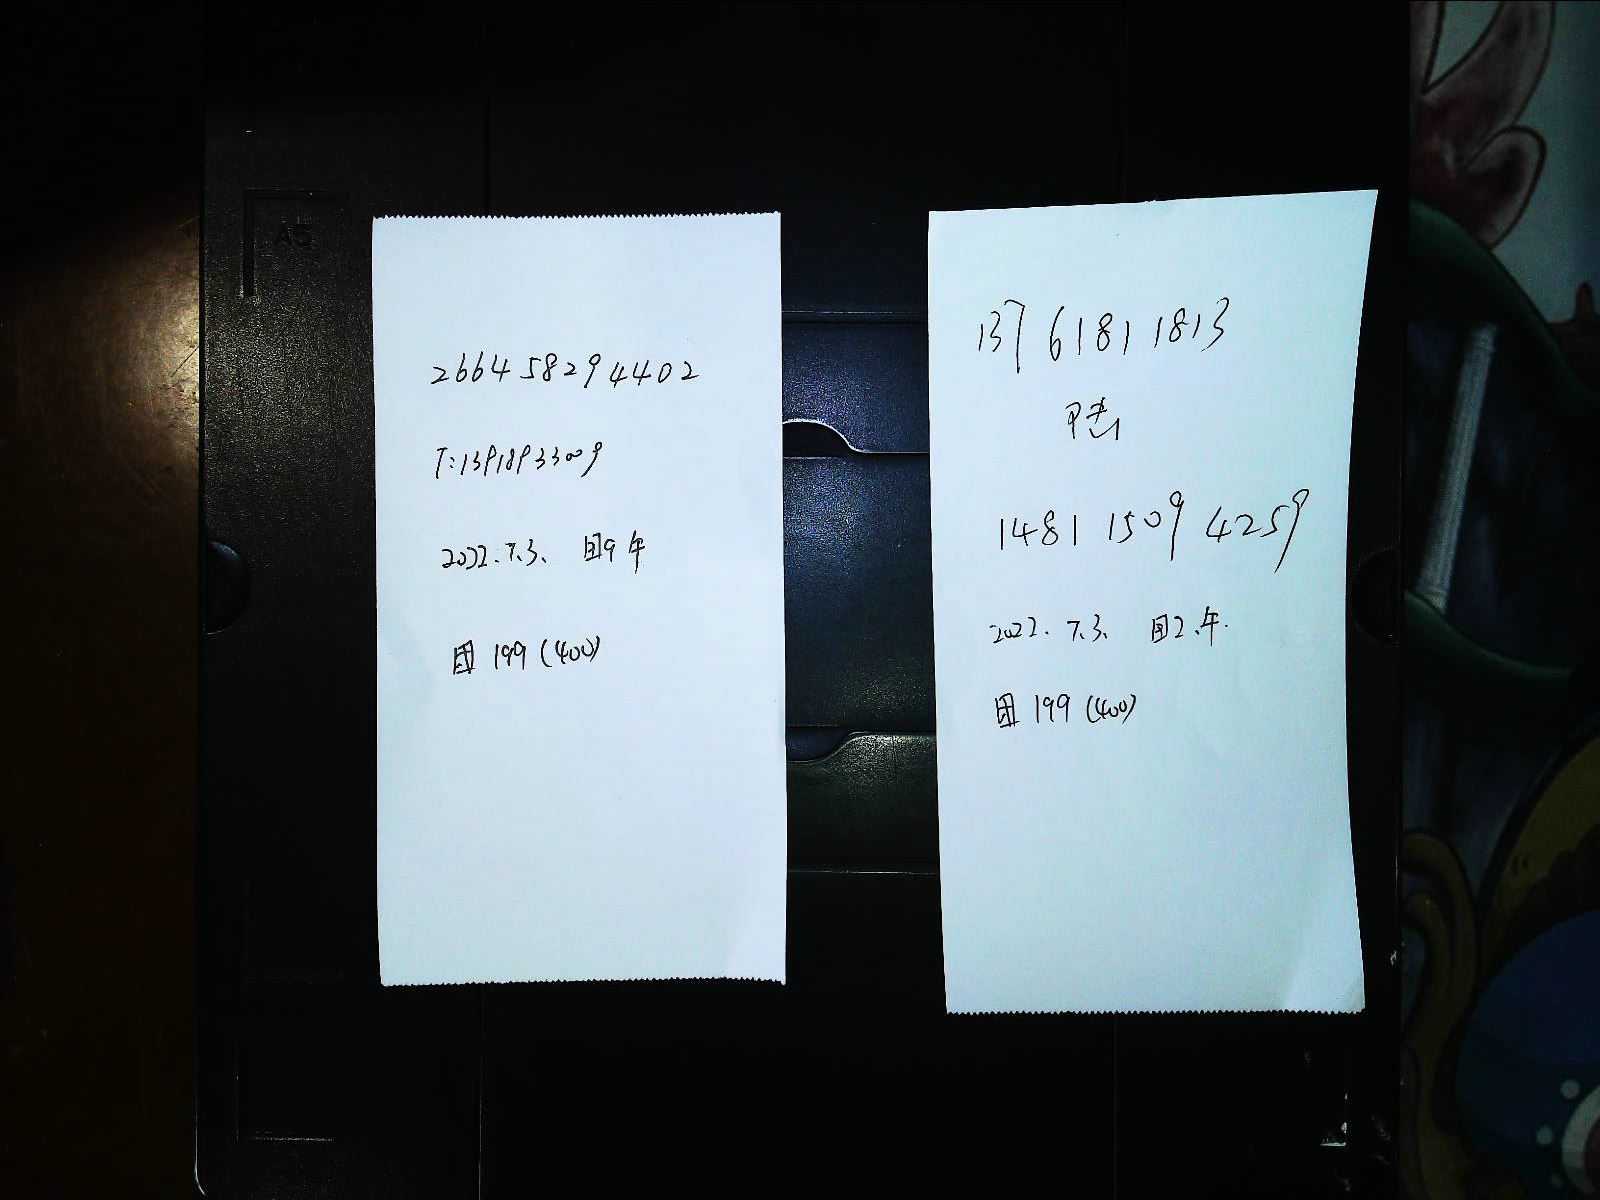 266458294402
T:13918933009
2022.7.3、 团9年
团 199 (400)
137 6181 1813
1481 1509 4259
2022. 7.3、 团2、年.
团 199 (400)
A5